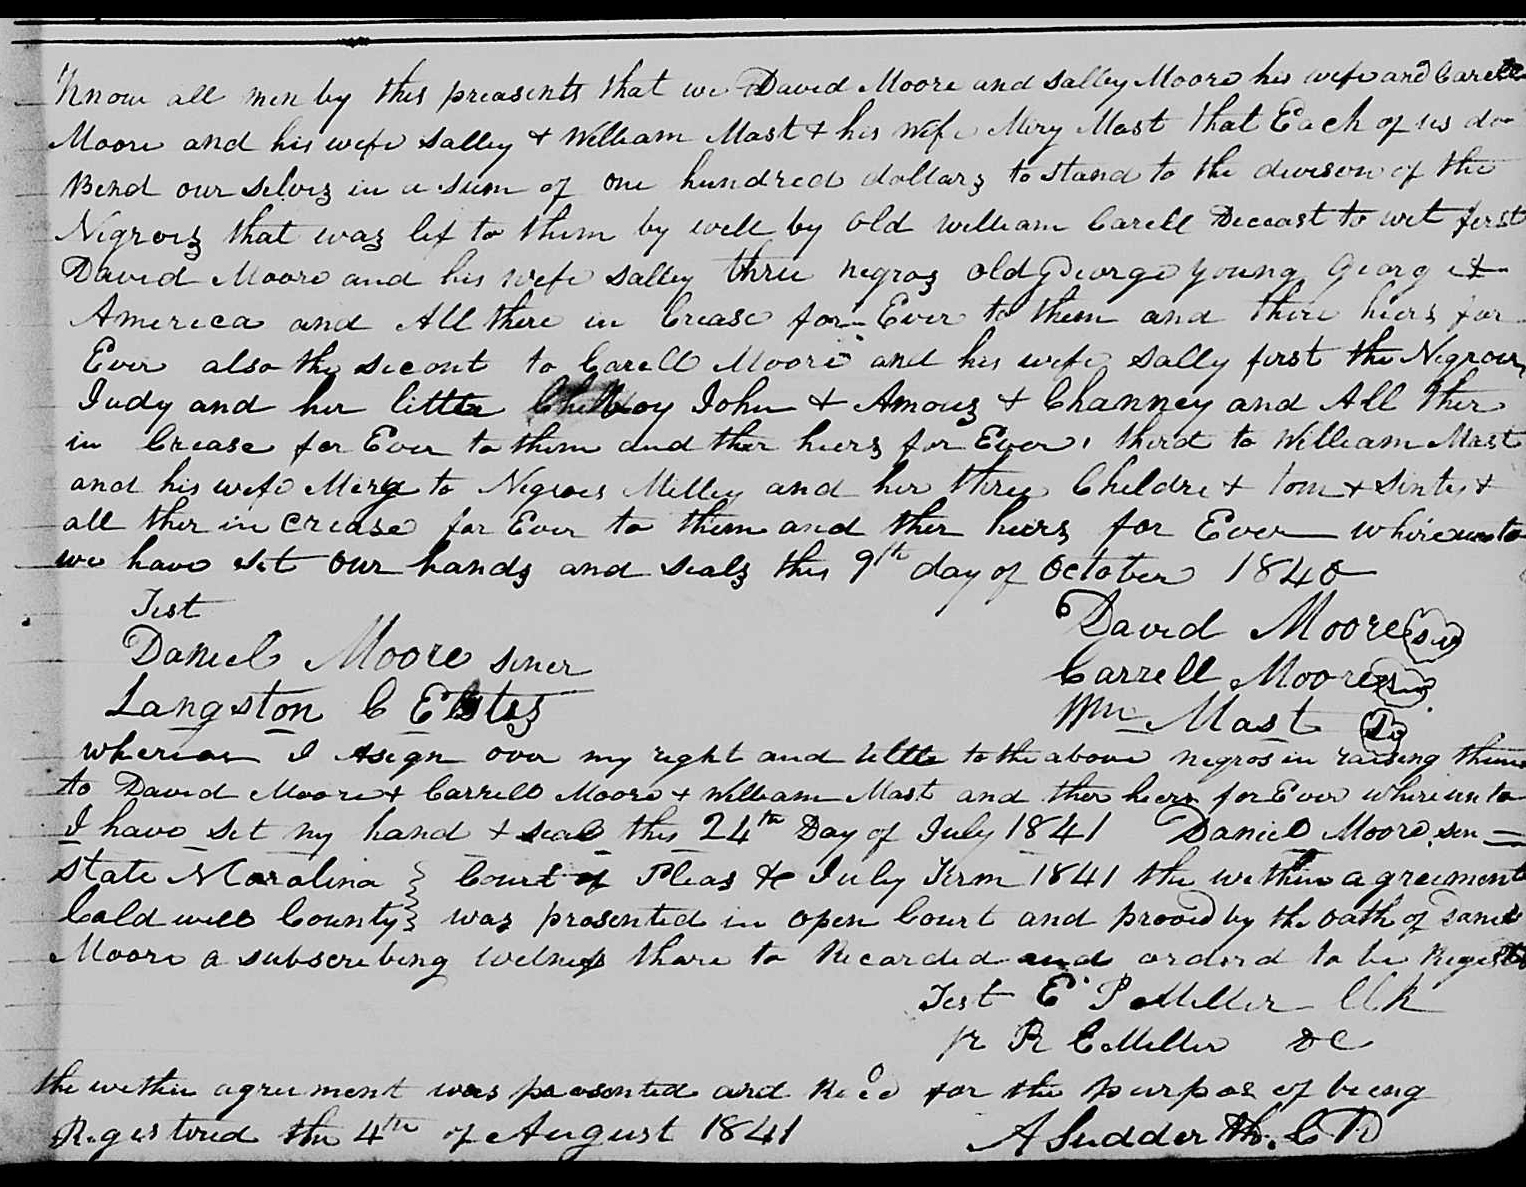 Know all men by this preasents that we David Moore and Salley Moore his wife and Carell
Moore and his wife Salley + William Mast + his wife Mery Mast that Each of us do
Bend our selves in a sum of one hundred dollars to stand to the devison of the
Negroes that was lef to them by will by old William Carell Deceast to wit first
David Moore and his wife Salley three negros old George young George &
America and All there in Crease for Ever to them and there heirs for
Ever also the secont to Carell Moore and his wife Sally first the Negroes
Judy and her little boy John + Amous + Channey and All ther
in Crease for Ever to them and ther heirs for Ever, third to William Mast
and his wife Mery to Negroes Milley and her three Childre + Tom + Sintey +
all ther in crease for Ever to them and ther heirs for Ever whereunto
we have set our hands and seals this 9th day of October 1840
Test
David Moore
Daniel Moore siner
Carrell Moore
Langston C Estes
Wm Mast
whereas I Asign over my right and tittle to the above negros in raising them
to David Moore + Carrell Moore + William Mast and ther heirs for Ever whereunto
I have set my hand + seal this 24th Day of July 1841 Daniel Moore sen
State N Carolina } Court of Pleas &c July Term 1841 the within agreement
Caldwell County } was presented in open Court and prooved by the oath of Daniel
Moore a subscribing witness thare to Recorded and orderd to be Registd
Test E P Miller Clk
pr R C Miller DC
the within agreement was presented and Recd for the purpose of being
Registered the 4th of August 1841 A Sudderth. C R